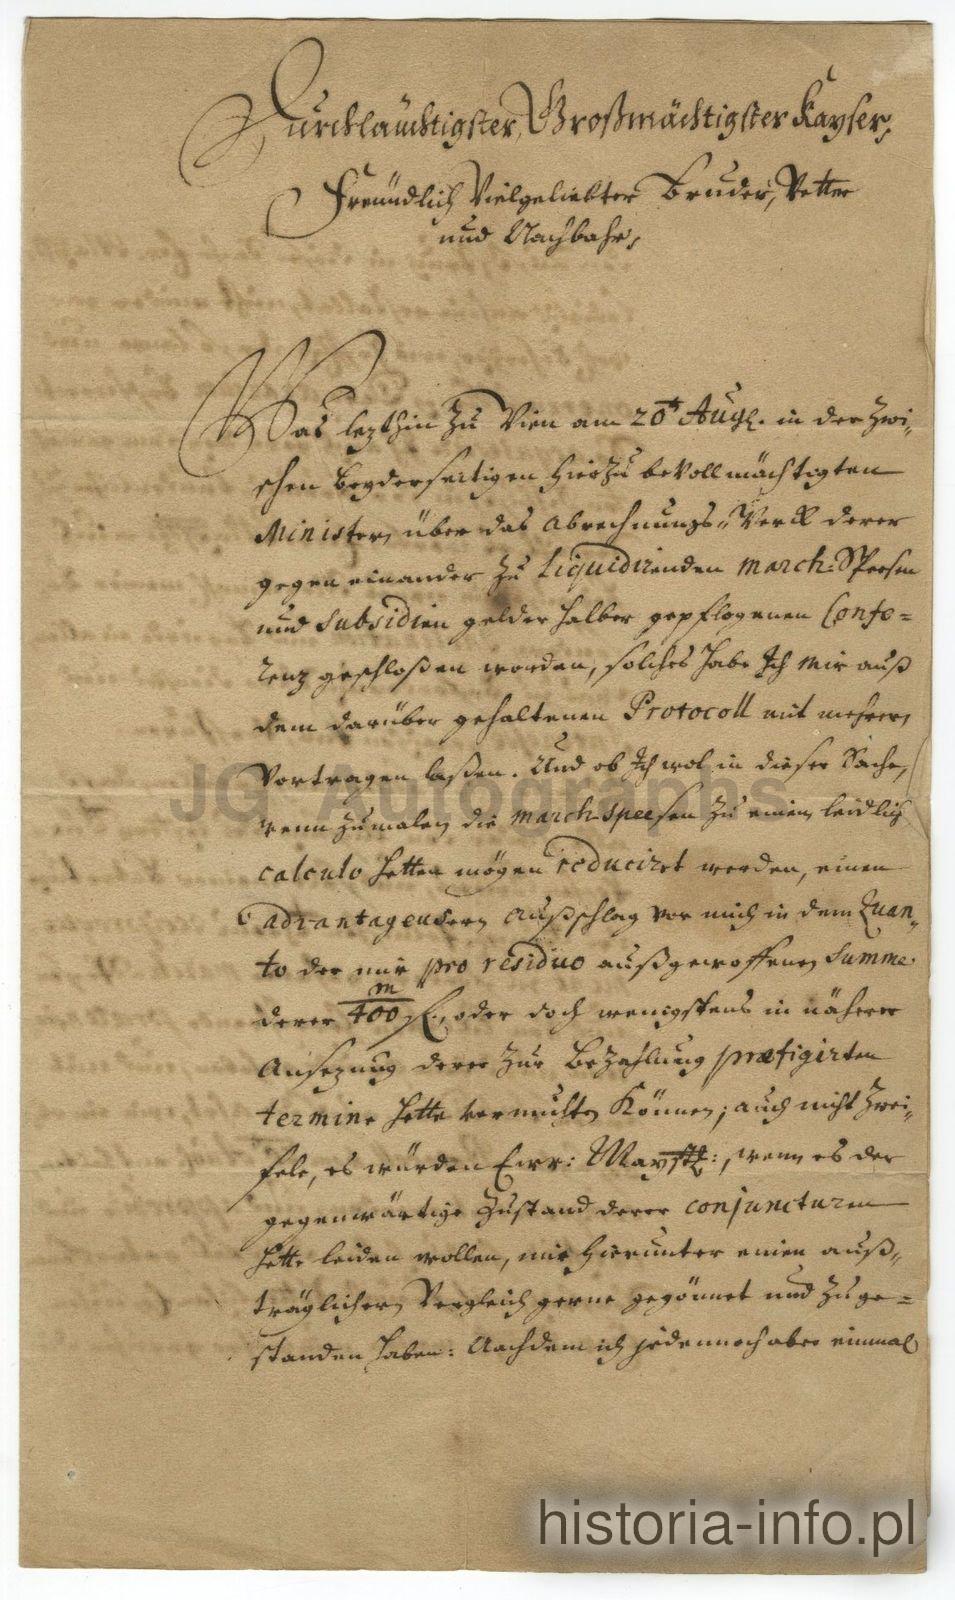 Durchläuchtigster, Großmächtigster Kayser,
Freündlich Vielgeliebter Bruder, Vetter
und Nachbahr,
Was letzthin zu Wien am 20t Augl. in der Zwi-
schen Beyderseitigen hierzu bevollmächtigten
Ministern über das Abrechnungs-Werck derer
gegen einander zu Liquidirenden March-Speesen
und Subsidien gelder halber gepflogenen Confe-
renz geschloßen worden, solches habe Ich mir auß
dem darüber gehaltenen Protocoll mit mehrern
Vortragen laßen. Und ob Ich wol in dieser Sache,
wenn zumalen die March-Speesen zu einem leidlich
calculo hetten mögen reduciret werden, einen
advantageusern Außschlag vor mich in dem Quan-
to der mir pro residuo außgeworffenen Summe
derer 400 m fl., oder doch wenigstens in näherer
Ansezung derer zur Bezahlung præfigirten
termine hette vermuhten können; auch nicht Zwei-
fele, es würden Ewr: Maystt:, wenn es der
gegenwärtige Zustand derer conjuncturen
hette leiden wollen, mir hierunter einen auß-
träglichern Vergleich gerne gegönnet und zuge-
standen haben: Nachdem ich jedennoch aber einmal
JG Autographs
historia-info.pl